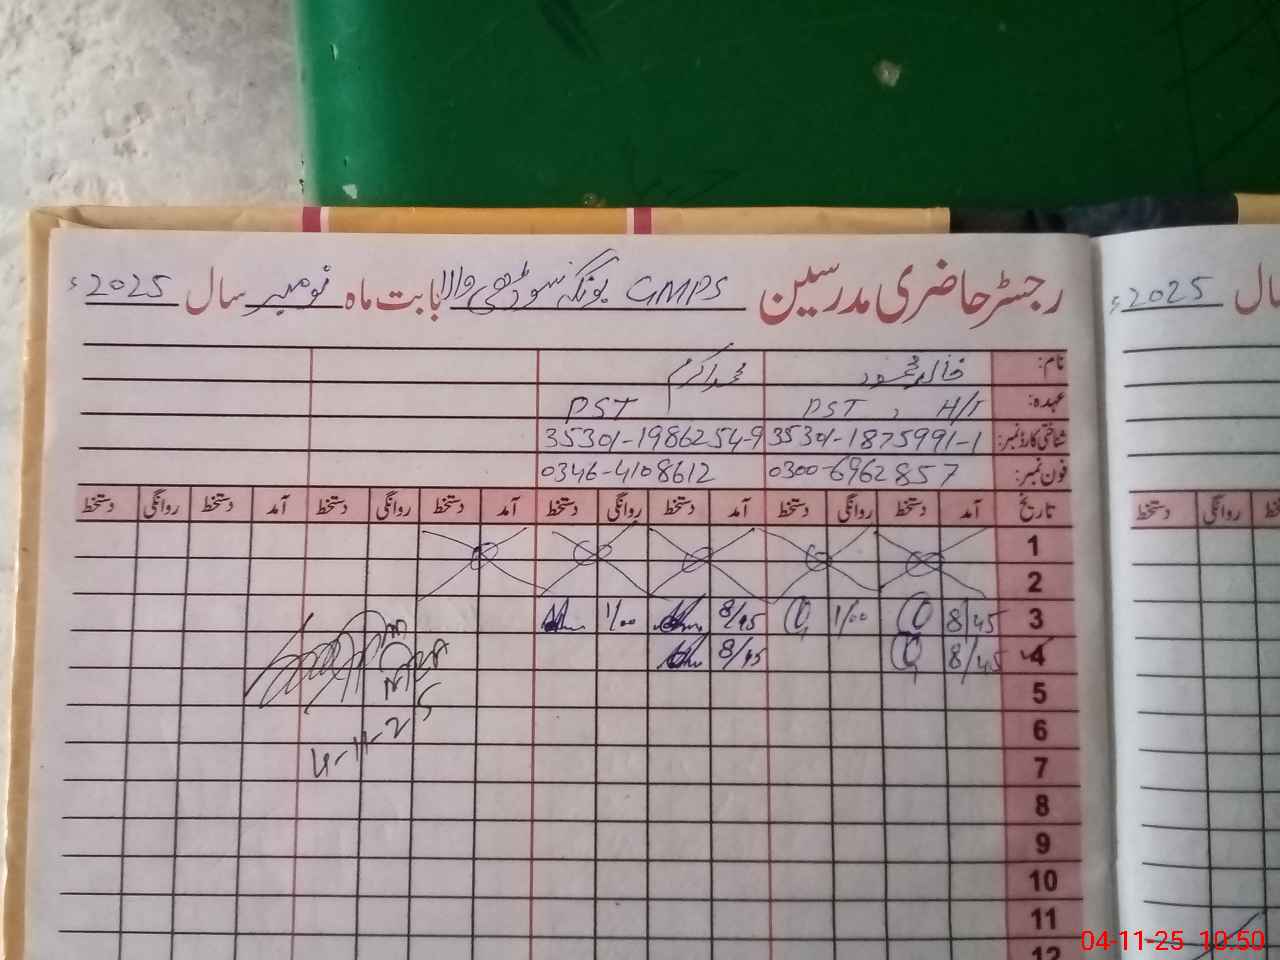 رجسٹر حاضری مدرسین GMPS بونگہ سوڈھی والا بابت ماہ نومبر سال 2025ء
نام: خالد محمود محمد اکرم
عہدہ: H/T , PST PST
شناختی کارڈ نمبر: 35301-1875991-1 35301-1986254-9
فون نمبر: 0300-6962857 0346-4108612
تاریخ آمد دستخط روانگی دستخط آمد دستخط روانگی دستخط آمد دستخط روانگی دستخط آمد دستخط روانگی دستخط
1
2
3 8/45 1/00 8/45 1/00
4 8/45 8/45
5
4-11-25
6
7
8
9
10
11
12
سال 2025ء
دستخط روانگی
04-11-25 10:50